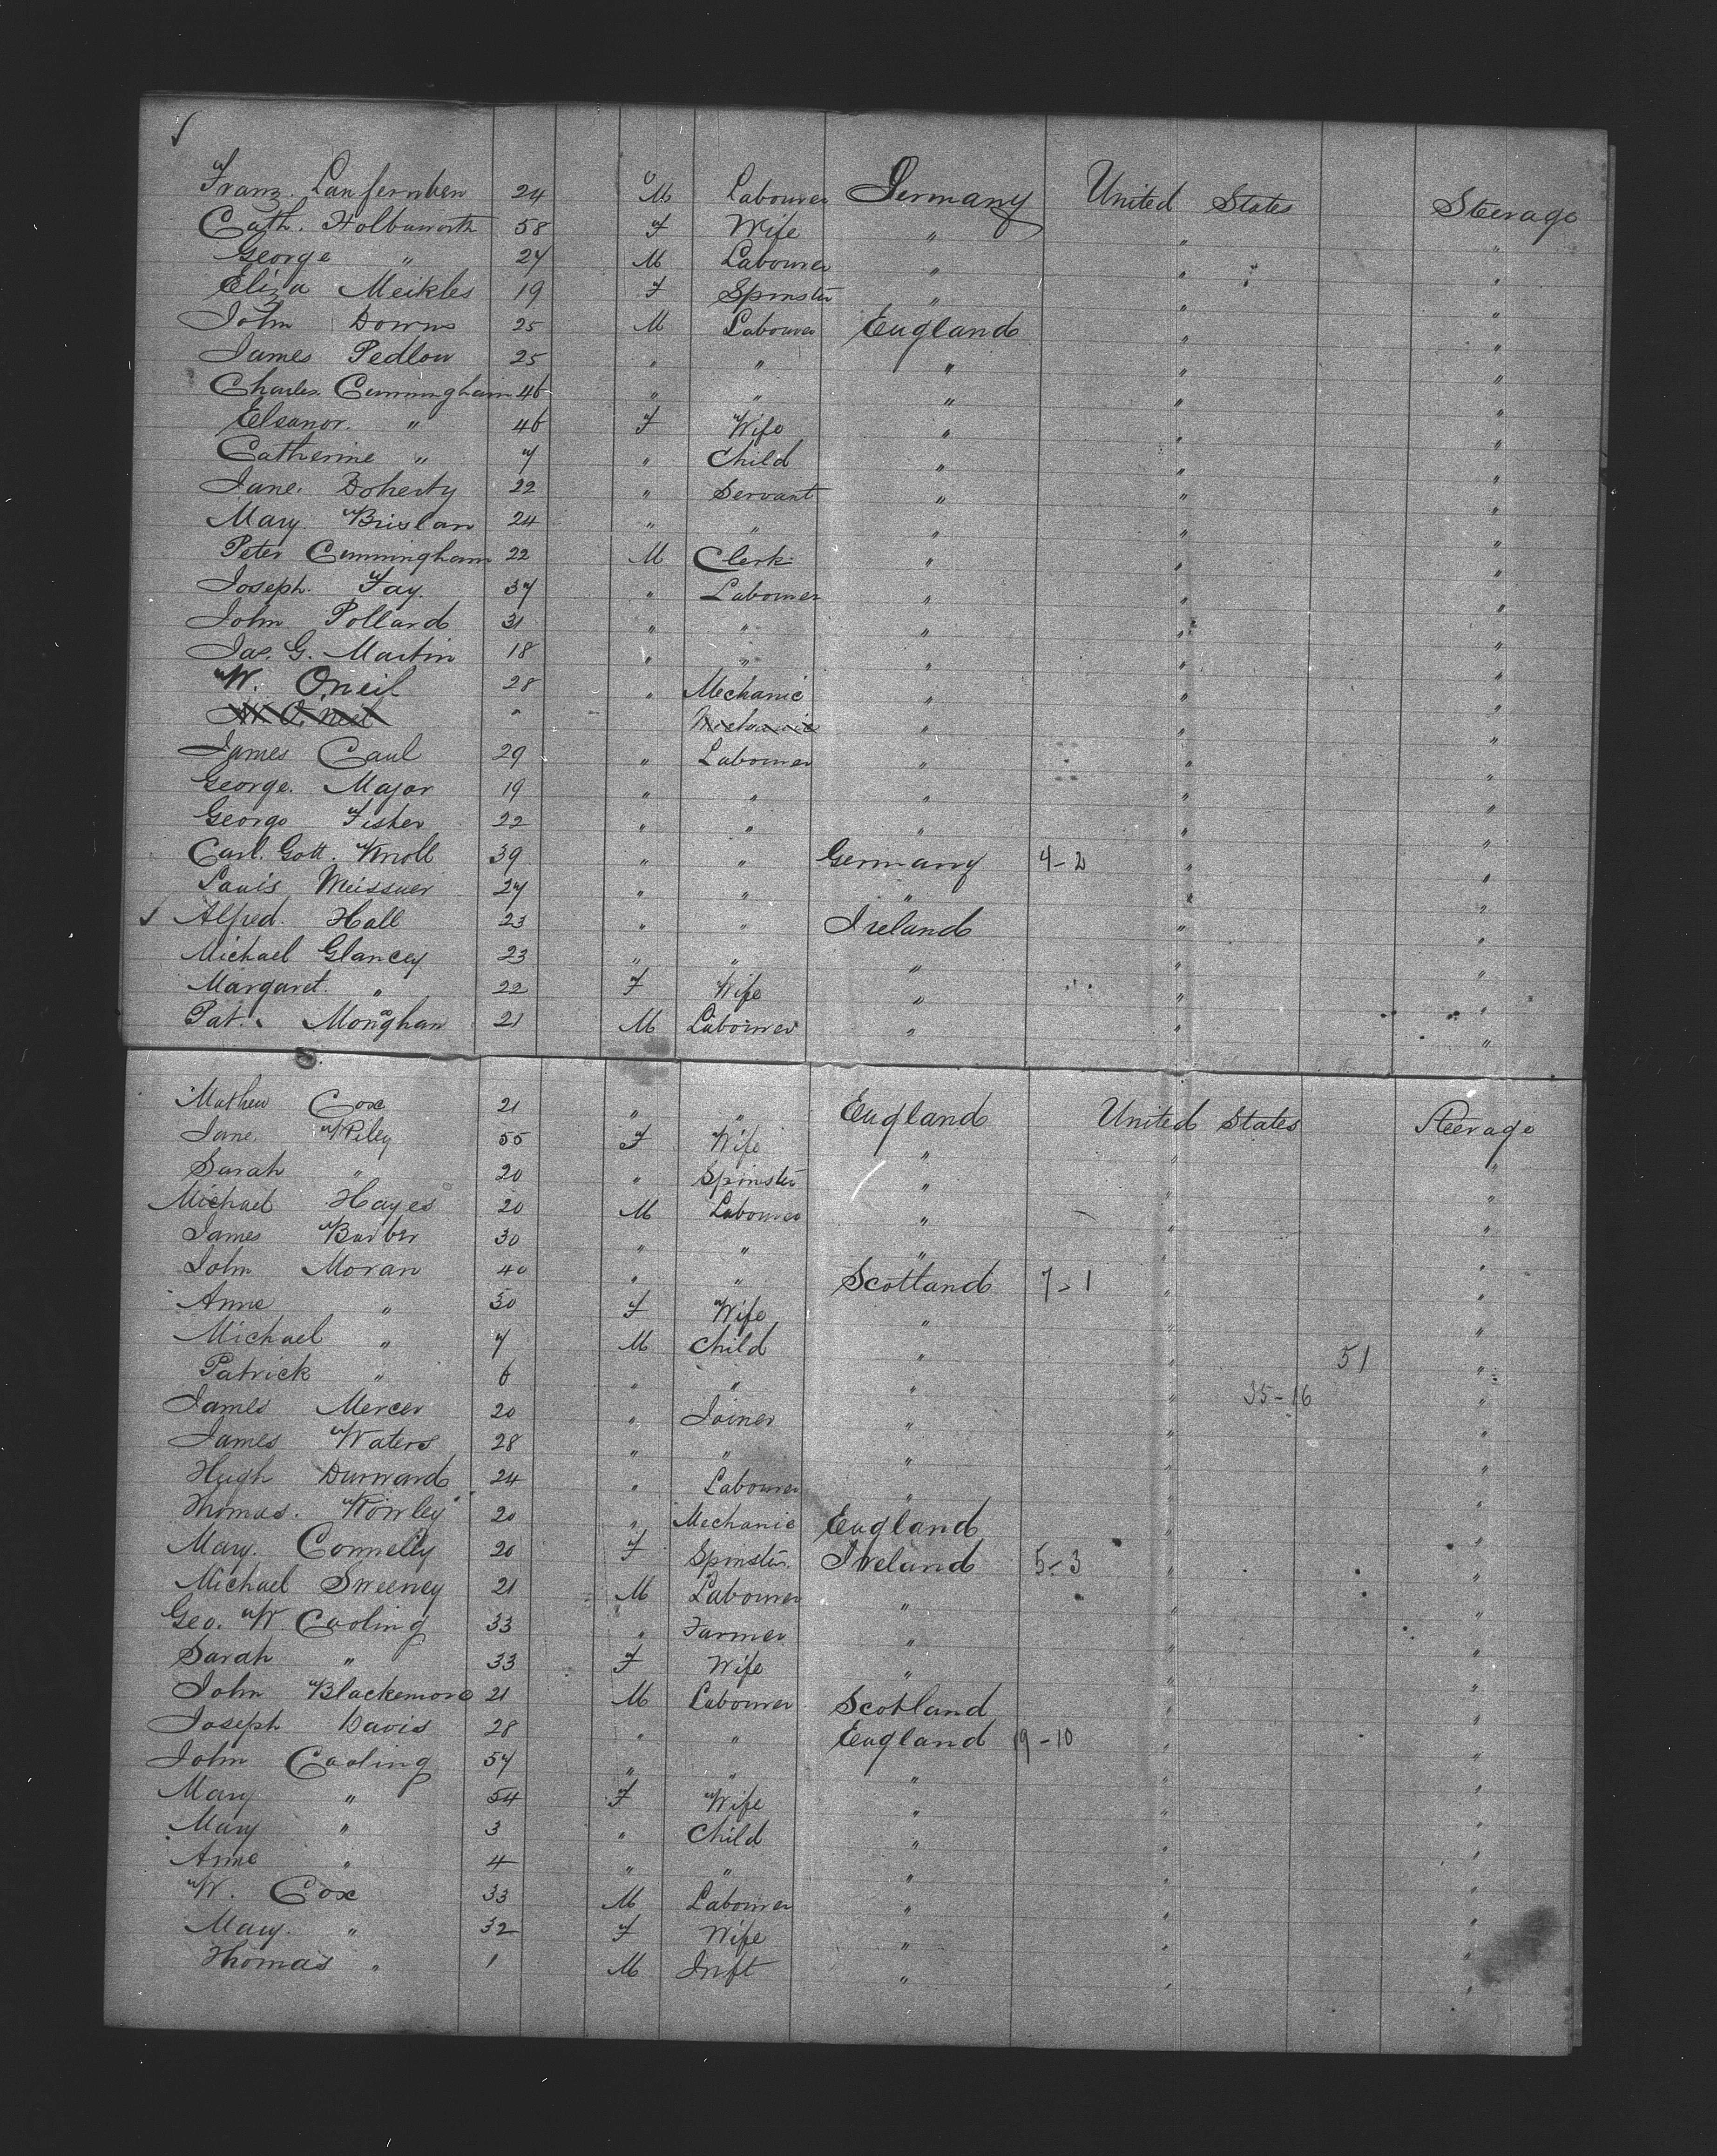 Franz. Lanfernben 24 M Labourer Germany United States Steerage
Cath. Holbuworth 58 F Wife " " "
George " 24 M Labourer " " "
Eliza Meikles 19 F Spinster " " "
John Downs 25 M Labourer England " "
James Pedlow 25 " " " " "
Charles Cunningham 46 " " " " "
Eleanor. " 46 F Wife " " "
Catherine " 7 " Child " " "
Jane. Doherty 22 " Servant " " "
Mary Brislan 24 " " " " "
Peter Cunningham 22 M Clerk " " "
Joseph. Fay. 37 " Labourer " " "
John Pollard 31 " " " " "
Jas. G. Martin 18 " " " " "
W. O'neil 28 " Mechanic " " "
W. O'Neil " Mechanic " " "
James Caul 29 " Labourer " " "
George. Major 19 " " " " "
George Fisher 22 " " " " "
Carl. Gott. Knoll 39 " " Germany 4-2 " "
Louis Meissner 27 " " " " "
Alfred. Hall 23 " " Ireland " "
Michael Glancey 23 " " " " "
Margaret. " 22 F Wife " " "
Pat. Monaghan 21 M Labourer " " "
Mathew Cox 21 " " England United States Steerage
Jane. Riley 55 F Wife " " "
Sarah " 20 " Spinster " " "
Michael Hayes 20 M Labourer " " "
James Barber 30 " " " " "
John Moran 40 " " Scotland 7-1 " "
Anne " 30 F Wife " " "
Michael " 7 M Child " " 51 "
Patrick " 6 " " " " 35-16 "
James Mercer 20 " Joiner " " "
James Waters 28 " " " " "
Hugh Durward 24 " Labourer " " "
Thomas. Rowley 20 " Mechanic England " "
Mary. Connelly 20 F Spinster. Ireland 5-3 " "
Michael Sweeney 21 M Labourer " " "
Geo. W. Cooling 33 " Farmer " " "
Sarah " 33 F Wife " " "
John Blackemore 21 M Labourer Scotland " "
Joseph Davis 28 " " England 19-10 " "
John Cooling 57 " " " " "
Mary " 54 F Wife " " "
Mary " 3 " Child " " "
Anne " 4 " " " " "
W. Cox 33 M Labourer " " "
Mary. " 32 F Wife " " "
Thomas " 1 M Inft " " "